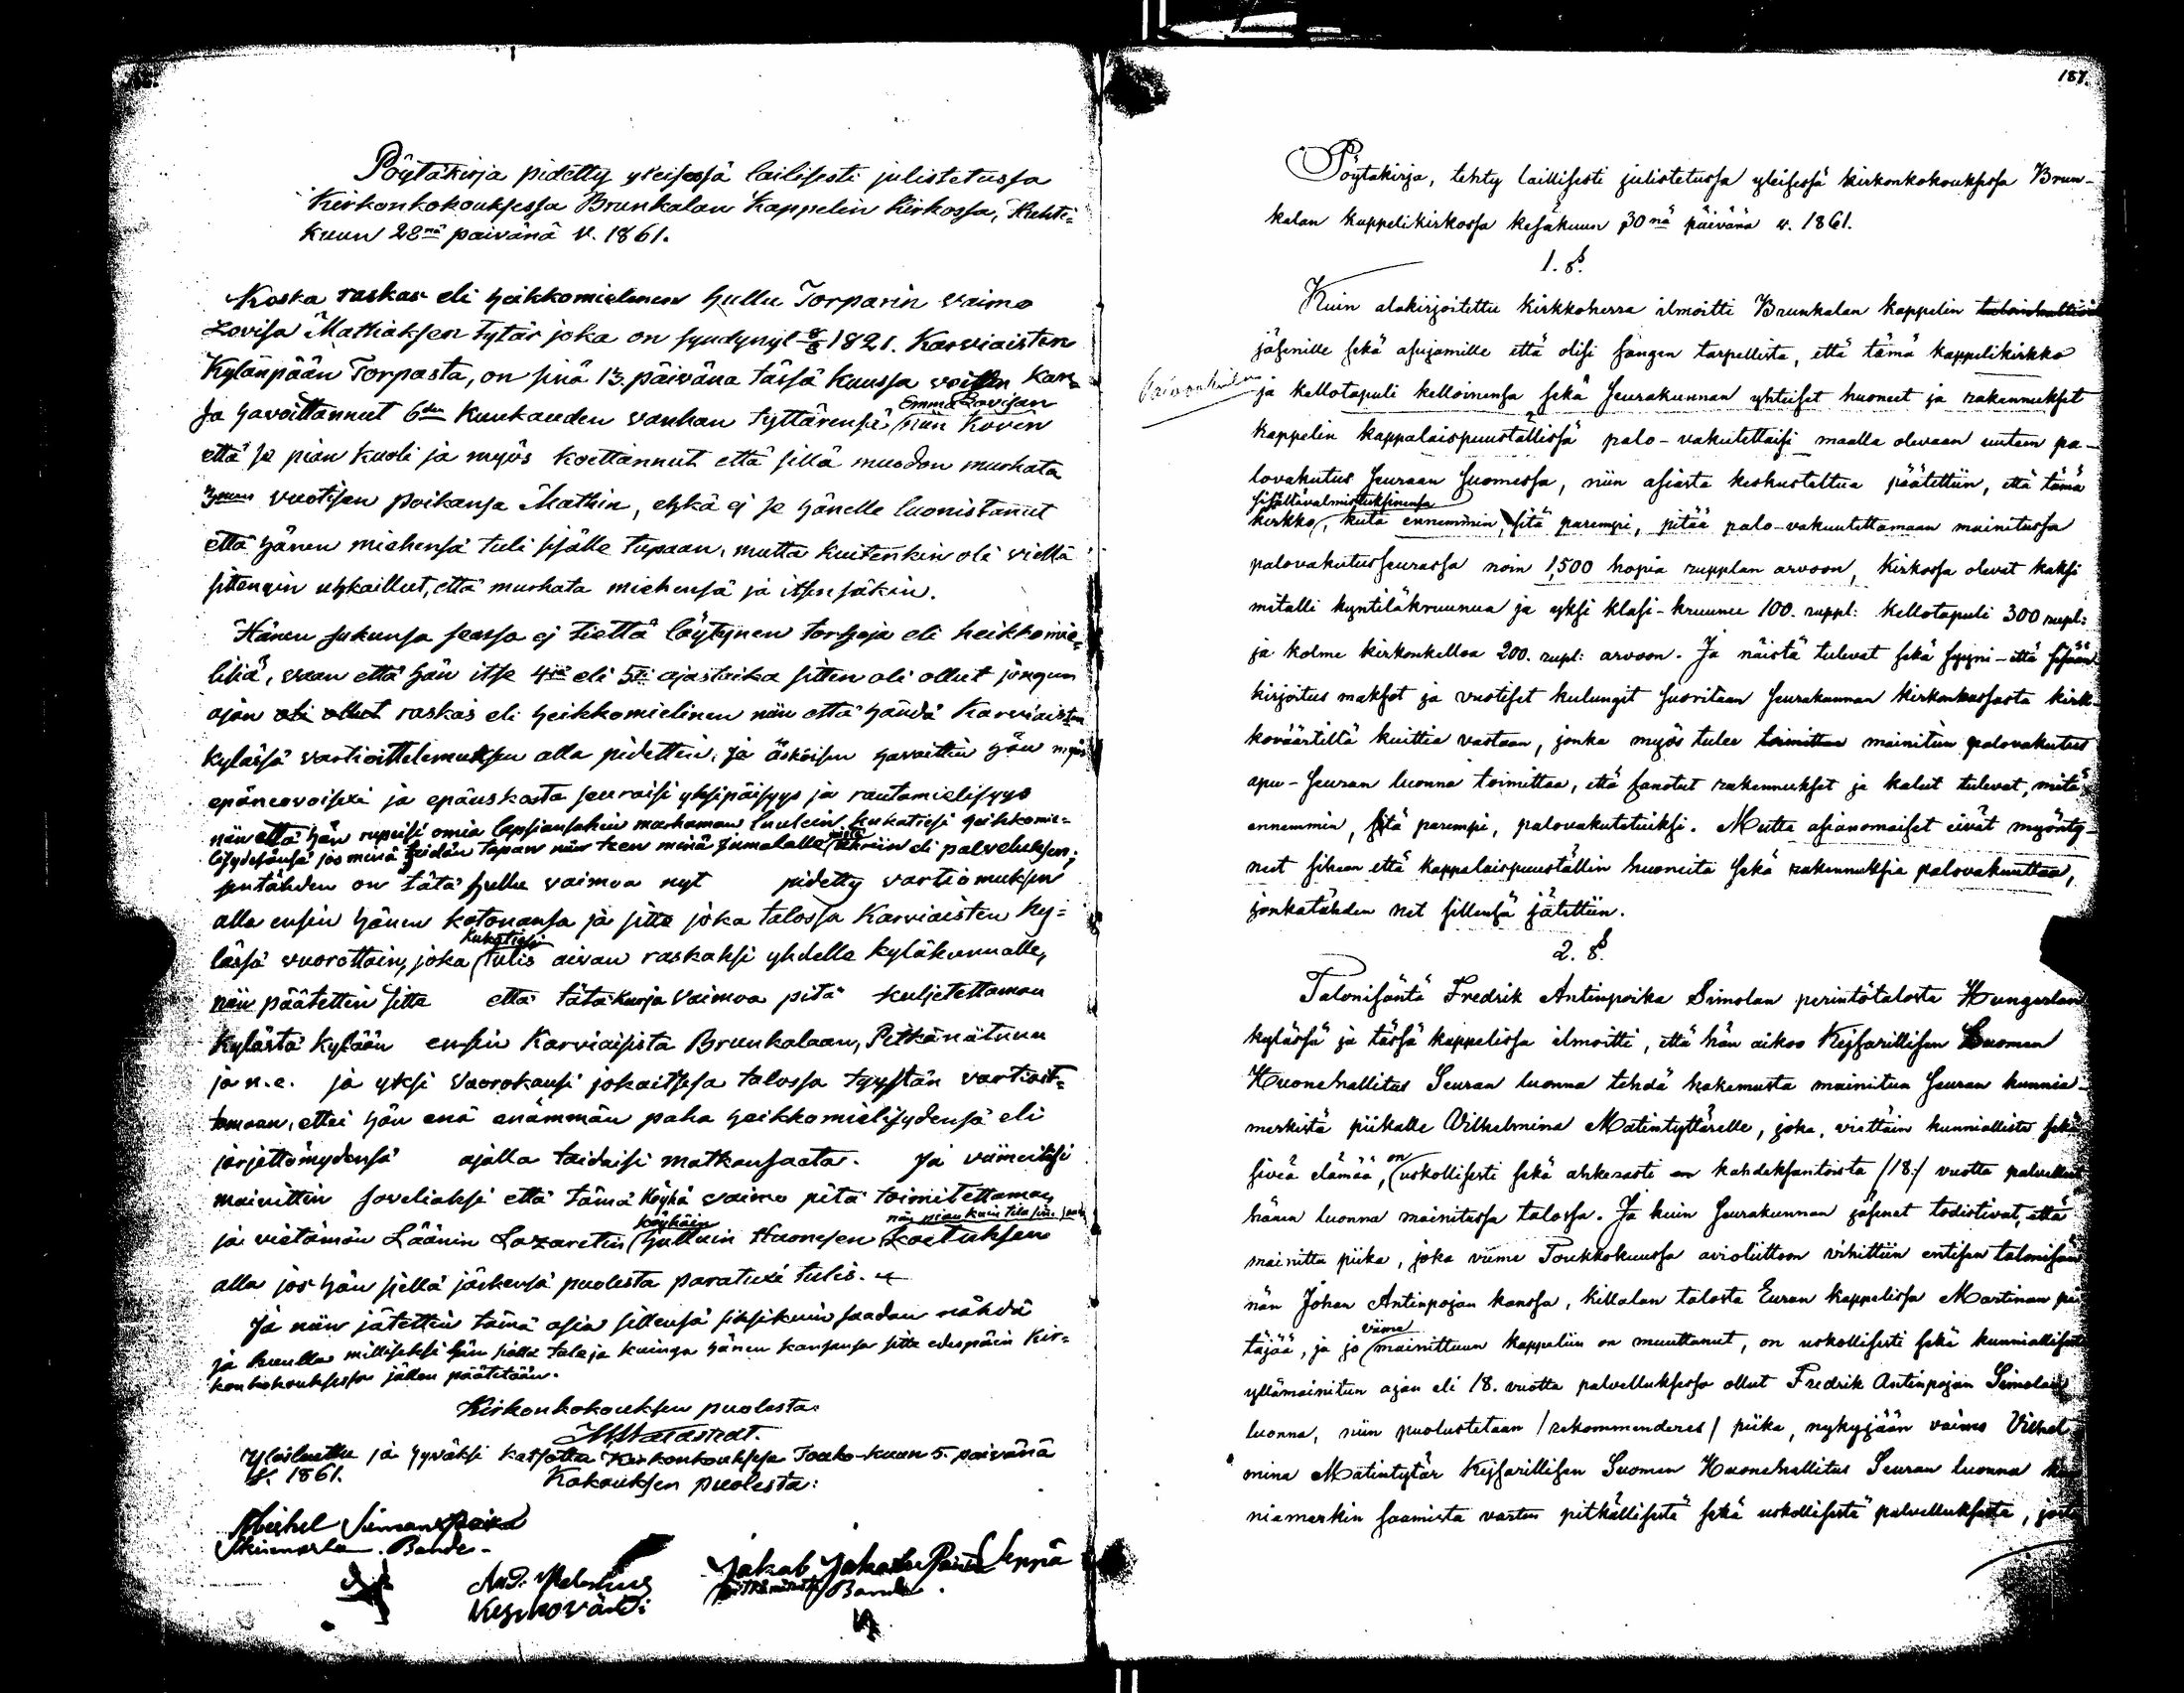 Pöytäkirja pidetty yleisesä lailisesti julistetussa
Kirkonkokouksessa Brunkalan Kappelin Kirkossa, Huhti-
kuun 28nä päivänä V. 1861.
Koska raskas eli heikkomielinen hullu Torparin vaimo
Lovisa Mathiaksen tytär joka on syndynyt 1821. Karviaisten
Kylänpään Torpasta, on sinä 13. päivänä tässä kuussa
ja havoittannut 6den kuukauden vanhan tyttärensä Emma Lovisan niin kovin
että se pian kuoli ja myös koettannut että sillä muodon murhata
vuotisen poikansa Mathin, ehkä ej se hänelle luonistannut
että hänen miehensä tuli sisälle tupaan, mutta kuitenkin oli vielä
sittengin uhkaillut, että murhata miehensä ja itsensäkin.
Hänen sukunsa seassa ej tiettä löytynen torhoja eli heikkomie-
lisiä, vaan että hän itse 4jä eli 5si ajastaika sitten oli ollut jongun
ajan oli ollut raskas eli heikkomielinen niin että händä Karviaisten
kylässä vartioittelemuksen alla pidettiin, ja äsköisen havaittiin hän myös
epänevoisexi ja epäuskosta seuraisi yksipäisyys ja rautamielisyys
niin että hän rupeisi omia lapsiansakin murhaman luulein kukatiesi heikkomie-
lisydesänsä jos minä heidän tapan niin teen minä Jumalalle eli palveluksen;
sentähden on tätä hullu vaimoa nyt pidetty vartiomuksen
alla ensin hänen kotonansa ja sitte joka talossa Karviaisten ky-
lässä vuorottain, joka kukatiesi tulis aivan raskaksi yhdelle kyläkunnalle,
niin päätettiin sitte että tätä kurja vaimoa pitä kuljetettaman
kylästä kylään ensin Karviaisista Brunkalaan, Pitkänätunn
ja n.e. ja yksi vuorokausi jokaitsesa talossa tyystän vartioit-
tamaan, ettei hän enä enämmän paha heikkomielisydensä eli
järjettömydensä ajalla taidaisi matkansaata. Ja viimeiseksi
mainittiin soveliaksi että tämä köyhä vaimo pitä toimitettaman
ja vietämän Läänin Lazaretin köyhäin hulluin Huonesen niin pian kuin tila siu. saada Koetuksen
alla jos hän siellä järkensä puolesta paratuxi tulis.
Ja niin jätettiin tämä asia sillensä siksikuin saadan nähdä
ja kuulla milliseksi hän siellä tule ja kuinga hänen kanssansa sitte edespäin Kir-
konkokouksessa jällen päätetään.
Kirkonkokouksen puolesta:
Ylösluettu ja hyväksi katsottu Kirkonkouksesa Touko-kuun 5. päivänä
V. 1861.
Kokouksen puolesta:
Michel Simonspoika
Bonde
Jakob Jakobs Poika Seppä
Bonde
187.
Pöytäkirja, tehty laillisesti julistetussa yleisessä kirkonkokouksessa Brun-
kalan kappelikirkossa kesäkuun 30nä päivänä v. 1861.
1. §.
Kuin alakirjoitettu kirkkoherra ilmoitti Brunkalan kappelin
jäsenille sekä asujamille että olisi sangen tarpellista, että tämä kappelikirkko
ja kellotapuli kelloinensa sekä Seurakunnan yhteiset huoneet ja rakennukset
kappelin kappalaispuuställissä palo-vakutettaisi maalla olevaan uuteen pa-
lovakutus Seuraan Suomessa, niin asiasta keskusteltua päätettiin, että tämä
kirkko, sisältävalmistuksinensa kuta ennemmin, sitä parempi, pitää palo-vakuutettamaan mainitussa
palovakutusseurassa noin 1,500 hopia rupplan arvoon, kirkossa olevat kaksi
mitalli kyntiläkruunua ja yksi klasi-kruunu 100. ruppl: kellotapuli 300 rupl:
ja kolme kirkonkelloa 200. rupl: arvoon. Ja näistä tulevat sekä syyni- että sisään
kirjoitus maksot ja vuotiset kulungit suoritaan Seurakunnan kirkonkassasta kirk-
koväärtiltä kuittia vastaan, jonka myös tulee toimittaa mainitun palovakutus
apu-Seuran luonna toimittaa, että sanotut rakennukset ja kalut tulevat, mitä
ennemmin, sitä parempi, palovakutetuiksi. Mutta asianomaiset eivät myönty-
neet siihen että kappalaispuuställin huoneita sekä rakennuksia palovakuuttaa,
jonkatähden net sillensä jätettiin.
2. §.
Talonisäntä Fredrik Antinpoika Simolan perintötalosta Hungerlan
kylässä ja tässä kappelissa ilmoitti, että hän aikoo Kejsarillisen Suomen
Huonehallitus Seuran luonna tehdä hakemusta mainitun Seuran kunnia-
merkistä piikalle Vilhelmina Matintyttärelle, joka, viettäin kunniallista sekä
siveä elämää, on uskollisesti sekä ahkerasti on kahdeksantoista /18:/ vuotta palvellut
hänen luonna mainitussa talossa. Ja kuin Seurakunnan jäsenet todistivat, että
mainittu piika, joka viime Toukkokuussa avioliittoon vihittiin entisen talonisän
nän Johan Antinpojan kanssa, Killalan talosta Euran kappelissa Martinan pi-
täjää, ja jo viime mainittuun kappeliin on muuttanut, on uskollisesti sekä kunniallisesti
yllämainitun ajan eli 18. vuotta palvelluksessa ollut Fredrik Antinpojan Simolan
luonna, niin puolustetaan /rekommenderas/ piika, nykyjään vaimo Vilhel-
mina Matintytär Kejsarillisen Suomen Huonehallitus Seuran luonna kun
niamerkin saamista vastus pitkällisestä sekä uskollisesta palvelluksesta, josta